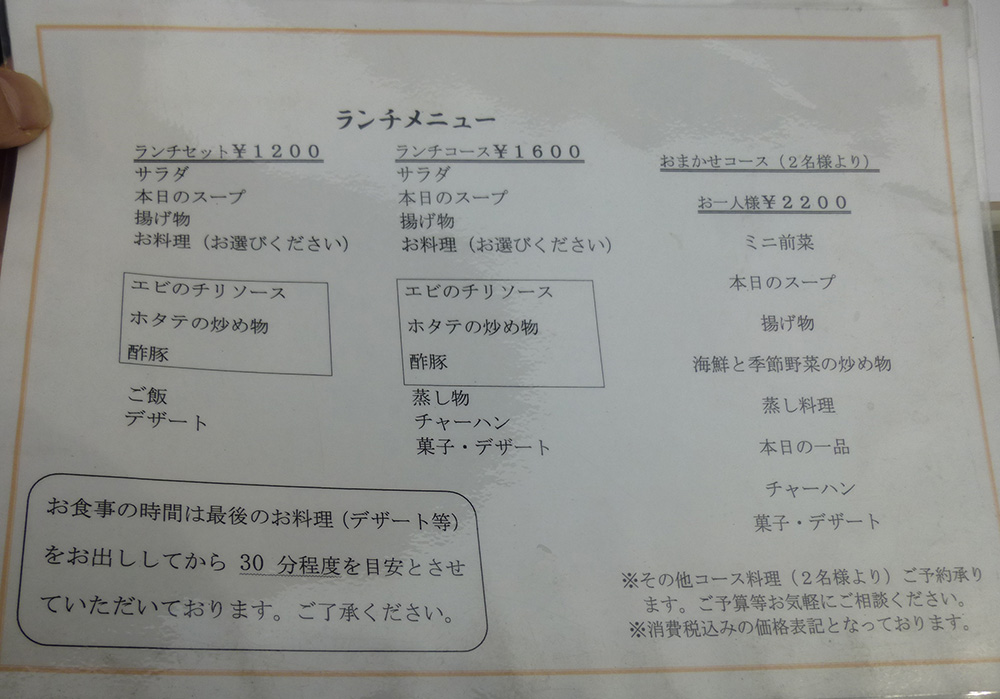 ランチメニュー
ランチセット￥１２００
サラダ
本日のスープ
揚げ物
お料理（お選びください）
エビのチリソース
ホタテの炒め物
酢豚
ご飯
デザート
ランチコース￥１６００
サラダ
本日のスープ
揚げ物
お料理（お選びください）
エビのチリソース
ホタテの炒め物
酢豚
蒸し物
チャーハン
菓子・デザート
おまかせコース（２名様より）
お一人様￥２２００
ミニ前菜
本日のスープ
揚げ物
海鮮と季節野菜の炒め物
蒸し料理
本日の一品
チャーハン
菓子・デザート
お食事の時間は最後のお料理（デザート等）
をお出ししてから 30 分程度を目安とさせ
ていただいております。ご了承ください。
※その他コース料理（２名様より）ご予約承り
ます。ご予算等お気軽にご相談ください。
※消費税込みの価格表記となっております。